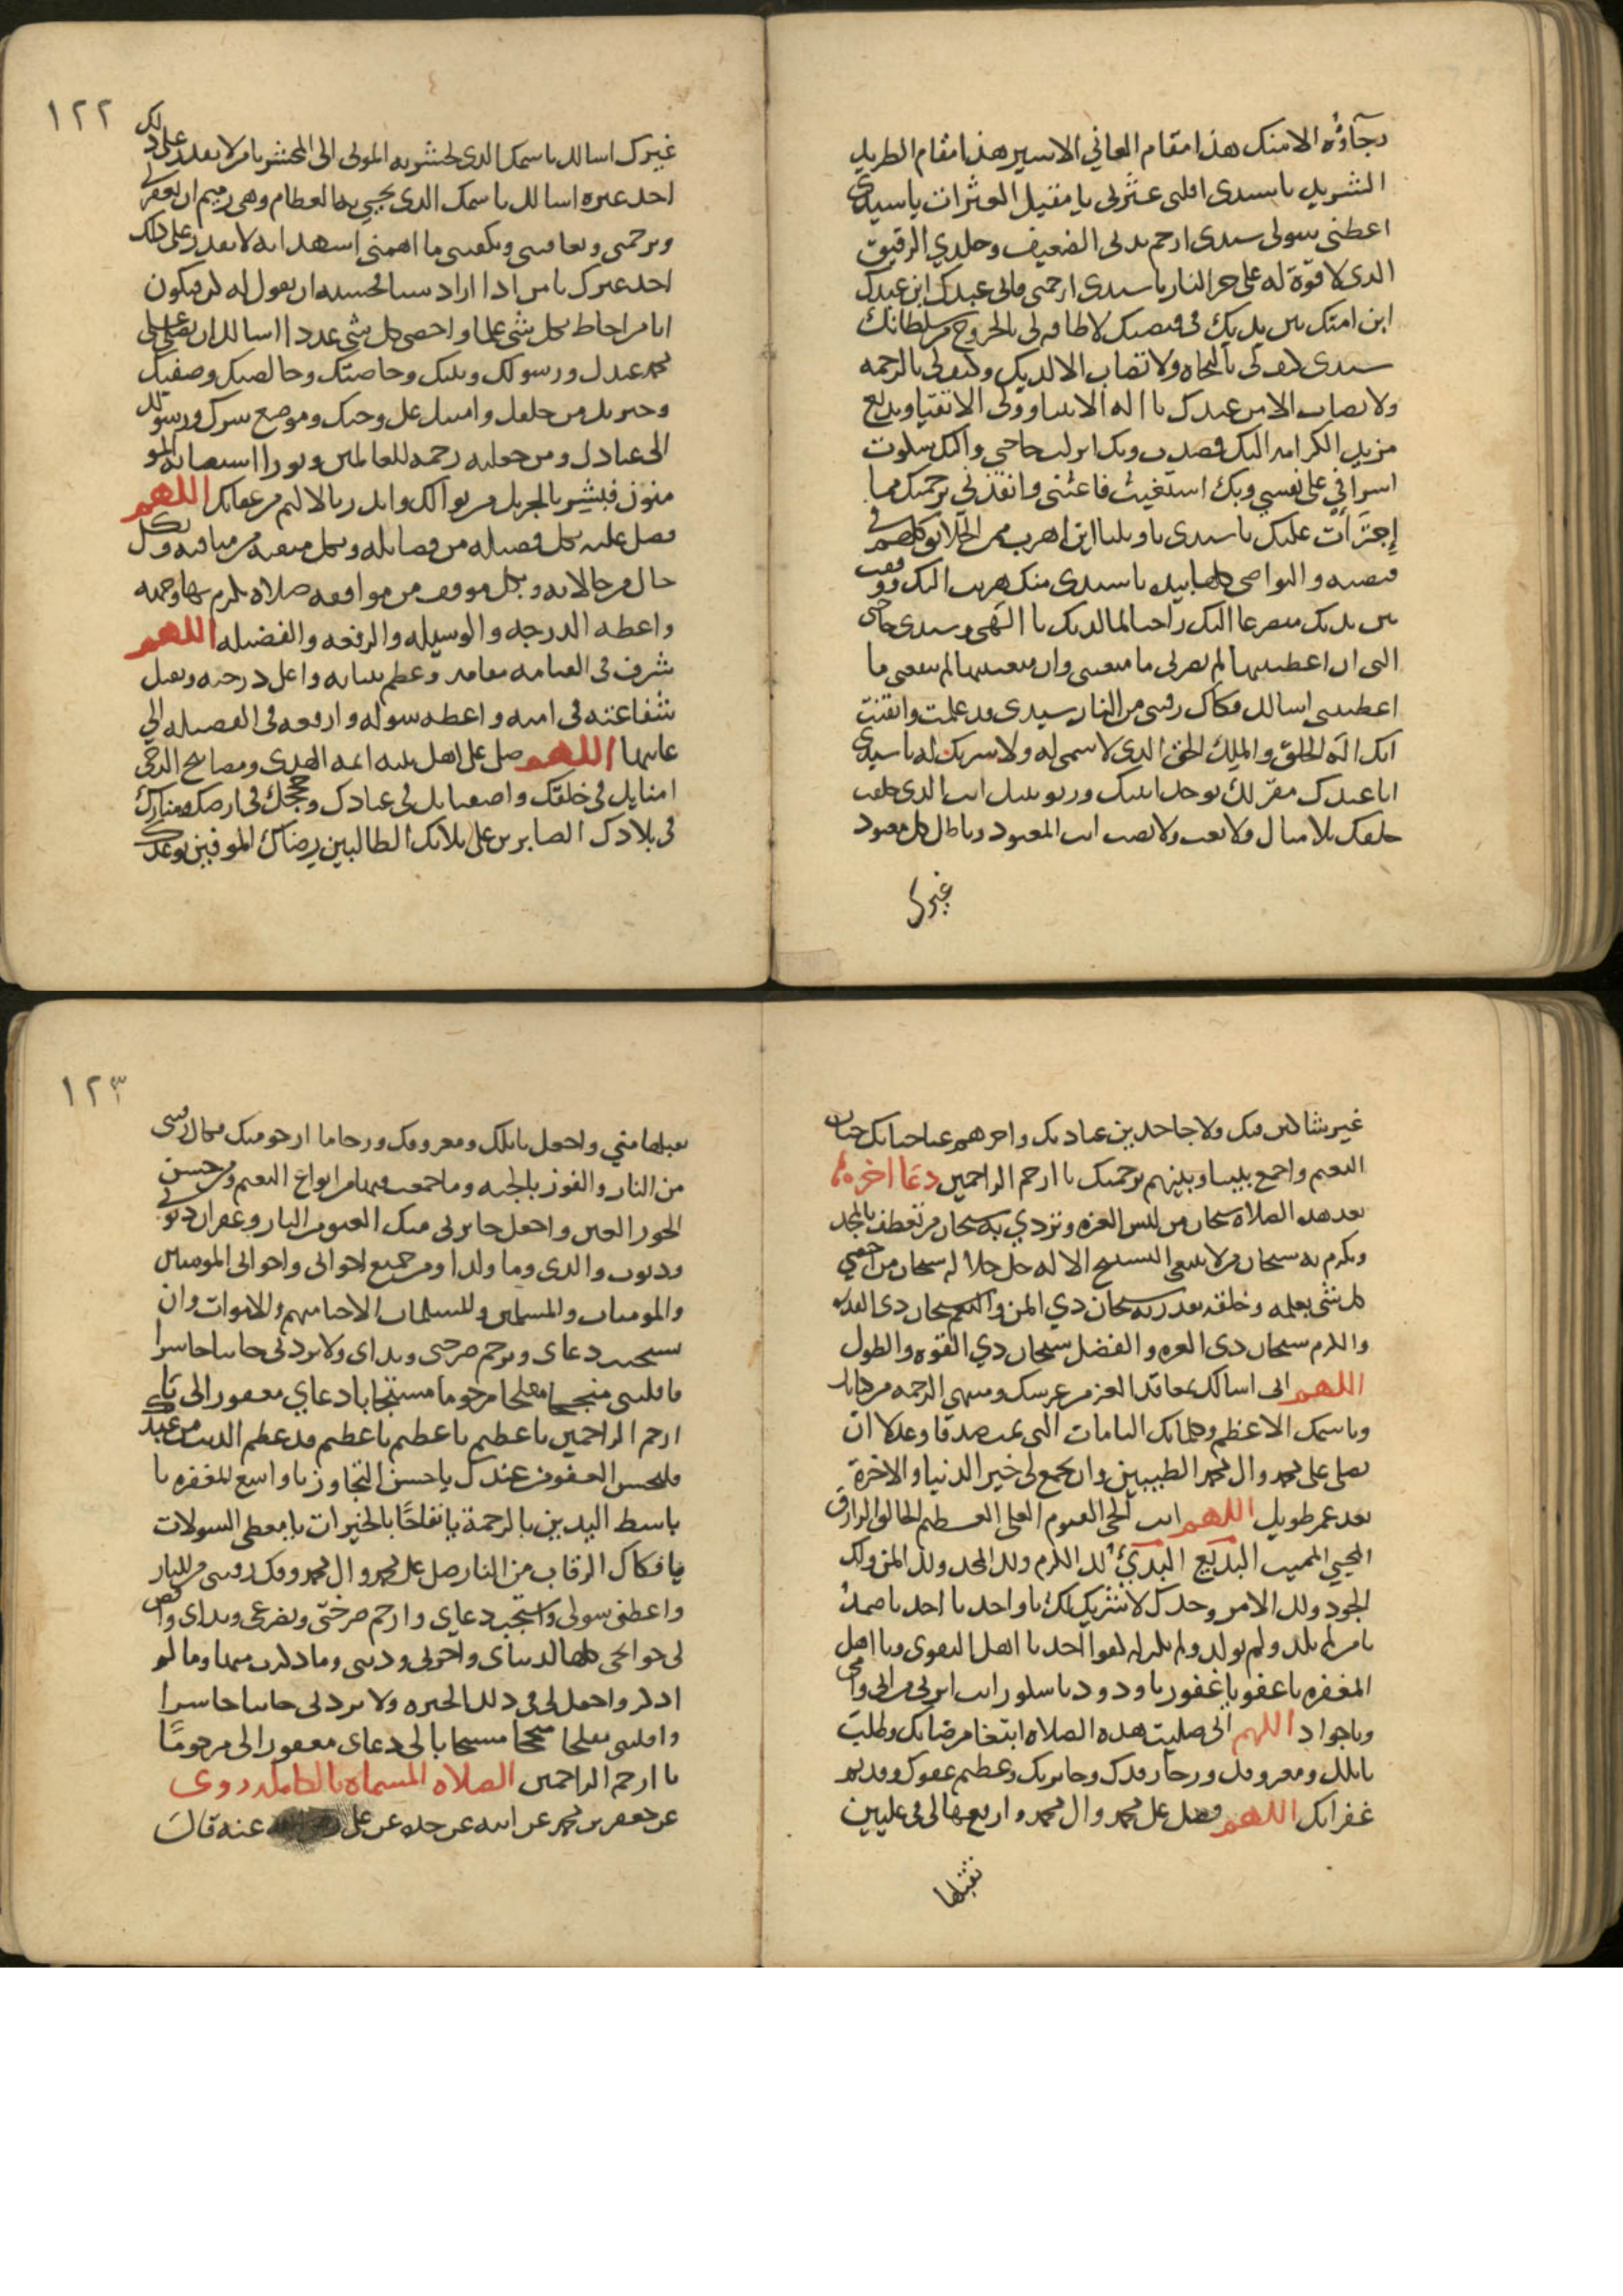 رجآؤه الا منك هذا مقام العاني الاسير هذا مقام الطريد
الشريد يا سيدي اقلني عثرتي يا مقيل العثرات يا سيدي
اعطني سولي سيدي ارحم بدني الضعيف وجلدي الرقيق
الذي لا قوة له على حر النار يا سيدي ارحمني فاني عبدك ابن عبدك
ابن امتك بين يديك في قبضتك لا طاقه لي بالخروج من سلطانك
سيدي كيف لي بالنجاه ولا تصاب الا لديك وكيف لي بالرحمه
ولا تصاب الا من عندك يا اله الانبيا وولي الاتقيا وبديع
مزيد الكرامه اليك قصدت وبك انزلت حاجتي واليك شكوت
اسرافي على نفسي وبك استغيث فاغثني وانقذني برحمتك مما
إجترأت عليك يا سيدي يا ويلتا اين اهرب ممن الخلايق كلهم في
قبضته والنواصي كلها بيده يا سيدي منك هربت اليك ووقفت
بين يديك متضرعا اليك راجيا لما لديك يا الهي وسيدي حاجتي
التي ان اعطيتنيها لم يضرني ما منعتني وان منعتنيها لم ينفعني ما
اعطيتني اسالك فكاك رقبتي من النار سيدي قد علمت وايقنت
انك اله الخلق والملك الحق الذي لا سمي له ولا شريك له يا سيدي
انا عبدك مقر لك بوحدانيتك وربوبيتك انت الذي خلقت
خلقك بلا مثال ولا تعب ولا نصب انت المعبود وباطل كل معبود
غيرك
١٢٢
غيرك اسالك باسمك الذي تحشر به الموتى الى المحشر يا من لا يقدر على ذلك
احد غيره اسالك باسمك الذي يحيي به العظام وهي رميم ان تغفر لي
وترحمني وتعافيني وتكفيني ما اهمني اشهد انه لا يقدر على ذلك
احد غيرك يا من اذا اراد شيا فحسبه ان يقول له كن فيكون
ايا من احاط بكل شي علما واحصى كل شي عددا اسالك ان تصلي على
محمد عبدك ورسولك ونبيك وخاصتك وخالصتك وصفيك
وخيرتك من خلقك وامينك على وحيك وموضع سرك ورسولك
الى عبادك ومن جعلته رحمه للعالمين ونورا استضا به المو
منون فبشر بالجزيل من ثوابك وانذر بالاليم من عقابك اللهم
فصل عليه بكل فضيله من فضايله وبكل منقبه من مناقبه وبكل
حال من حالاته وبكل موقف من مواقفه صلاه تكرم بها وجهه
واعطه الدرجه والوسيله والرفعه والفضيله اللهم
شرف في القيامه مقامه وعظم بنيانه واعل درجته وتقبل
شفاعته في امته واعطه سوله وارفعه في الفضيله الى
غايتها اللهم صل على اهل بيته ايمه الهدى ومصابيح الدجى
امنايك في خلقك واصفيايك في عبادك وحججك في ارضك ومنارك
في بلادك الصابرين على بلايك الطالبين رضاك الموفين بوعدك
غير شاكين فيك ولا جاحدين عبادتك واحزهم عنا جنانك جنات
النعيم واجمع بيننا وبينهم برحمتك يا ارحم الراحمين دعا اخر
بعد هذه الصلاه سبحان من لبس العزه وتردي به سبحان من تعطف بالمجد
وتكرم به سبحان من لا ينبغي التسبيح الا له جل جلاله سبحان من احصى
كل شي بعلمه وخلقه بقدرته سبحان ذي المن والنعم سبحان ذي القدره
والكرم سبحان ذي العزه والفضل سبحان ذي القوه والطول
اللهم اني اسالك بمعاقد العز من عرشك ومنتهى الرحمه من كتابك
وباسمك الاعظم وكلماتك التامات التي تمت صدقا وعدلا ان
تصلي على محمد وال محمد الطيبين وان تجمع لي خير الدنيا والاخرة
بعد عمر طويل اللهم انت الحي القيوم العلي العظيم الخالق الرازق
المحيي المميت البديع البدئ لك الكرم ولك المجد ولك المن ولك
الجود ولك الامر وحدك لا شريك لك يا واحد يا احد يا صمد
يا من لم يلد ولم يولد ولم يكن له كفوا احد يا اهل التقوى ويا اهل
المغفره يا عفو يا غفور يا ودود يا شكور انت ابر بي من ابي وامي
ويا جواد اللهم اني صليت هذه الصلاه ابتغا مرضاتك وطلب
نايلك ومعروفك ورجا رفدك وجايزتك وعظيم عفوك وقديم
غفرانك اللهم فصل على محمد وال محمد وارفعها لي في عليين
تقبلها
١٢٣
تقبلها مني واجعل نايلك ومعروفك ورجا ما ارجو منك فكاك رقبتي
من النار والفوز بالجنه وما جمعت فيها من انواع النعيم ومن حسن
الحور العين واجعل جايزتي منك العتق من النار وغفران ذنوبي
وذنوب والدي وما ولدا ومن جميع اخواني واخواتي المومنين
والمومنات والمسلمين والمسلمات الاحيا منهم والاموات وان
تستجيب دعاي وترحم صرختي ونداي ولا تردني خايبا خاسرا
فاقلبني منجحا مفلحا مرحوما مستجابا دعاي مغفورا لي يا
ارحم الراحمين يا عظيم يا عظيم يا عظيم قد عظم الذنب من عبدك
فليحسن العفو من عندك يا حسن التجاوز يا واسع المغفره يا
باسط اليدين بالرحمة يا نفاحًا بالخيرات يا معطي السولات
يا فكاك الرقاب من النار صل على محمد وال محمد وفك رقبتي من النار
واعطني سولي واستجب دعاي وارحم صرختي وتضرعي ونداي واقض
لي حوايجي كلها لدنياي واخرتي وديني وما ذكرت منها وما لم
اذكر واجعل لي في ذلك الخيره ولا تردني خايبا خاسرا
واقلبني مفلحا منجحا مستجابا لي دعاي مغفورا لي مرحومًا
يا ارحم الراحمين الصلاه المسماه بالكامله روى
عن جعفر بن محمد عن ابيه عن جده عن علي عنه قال